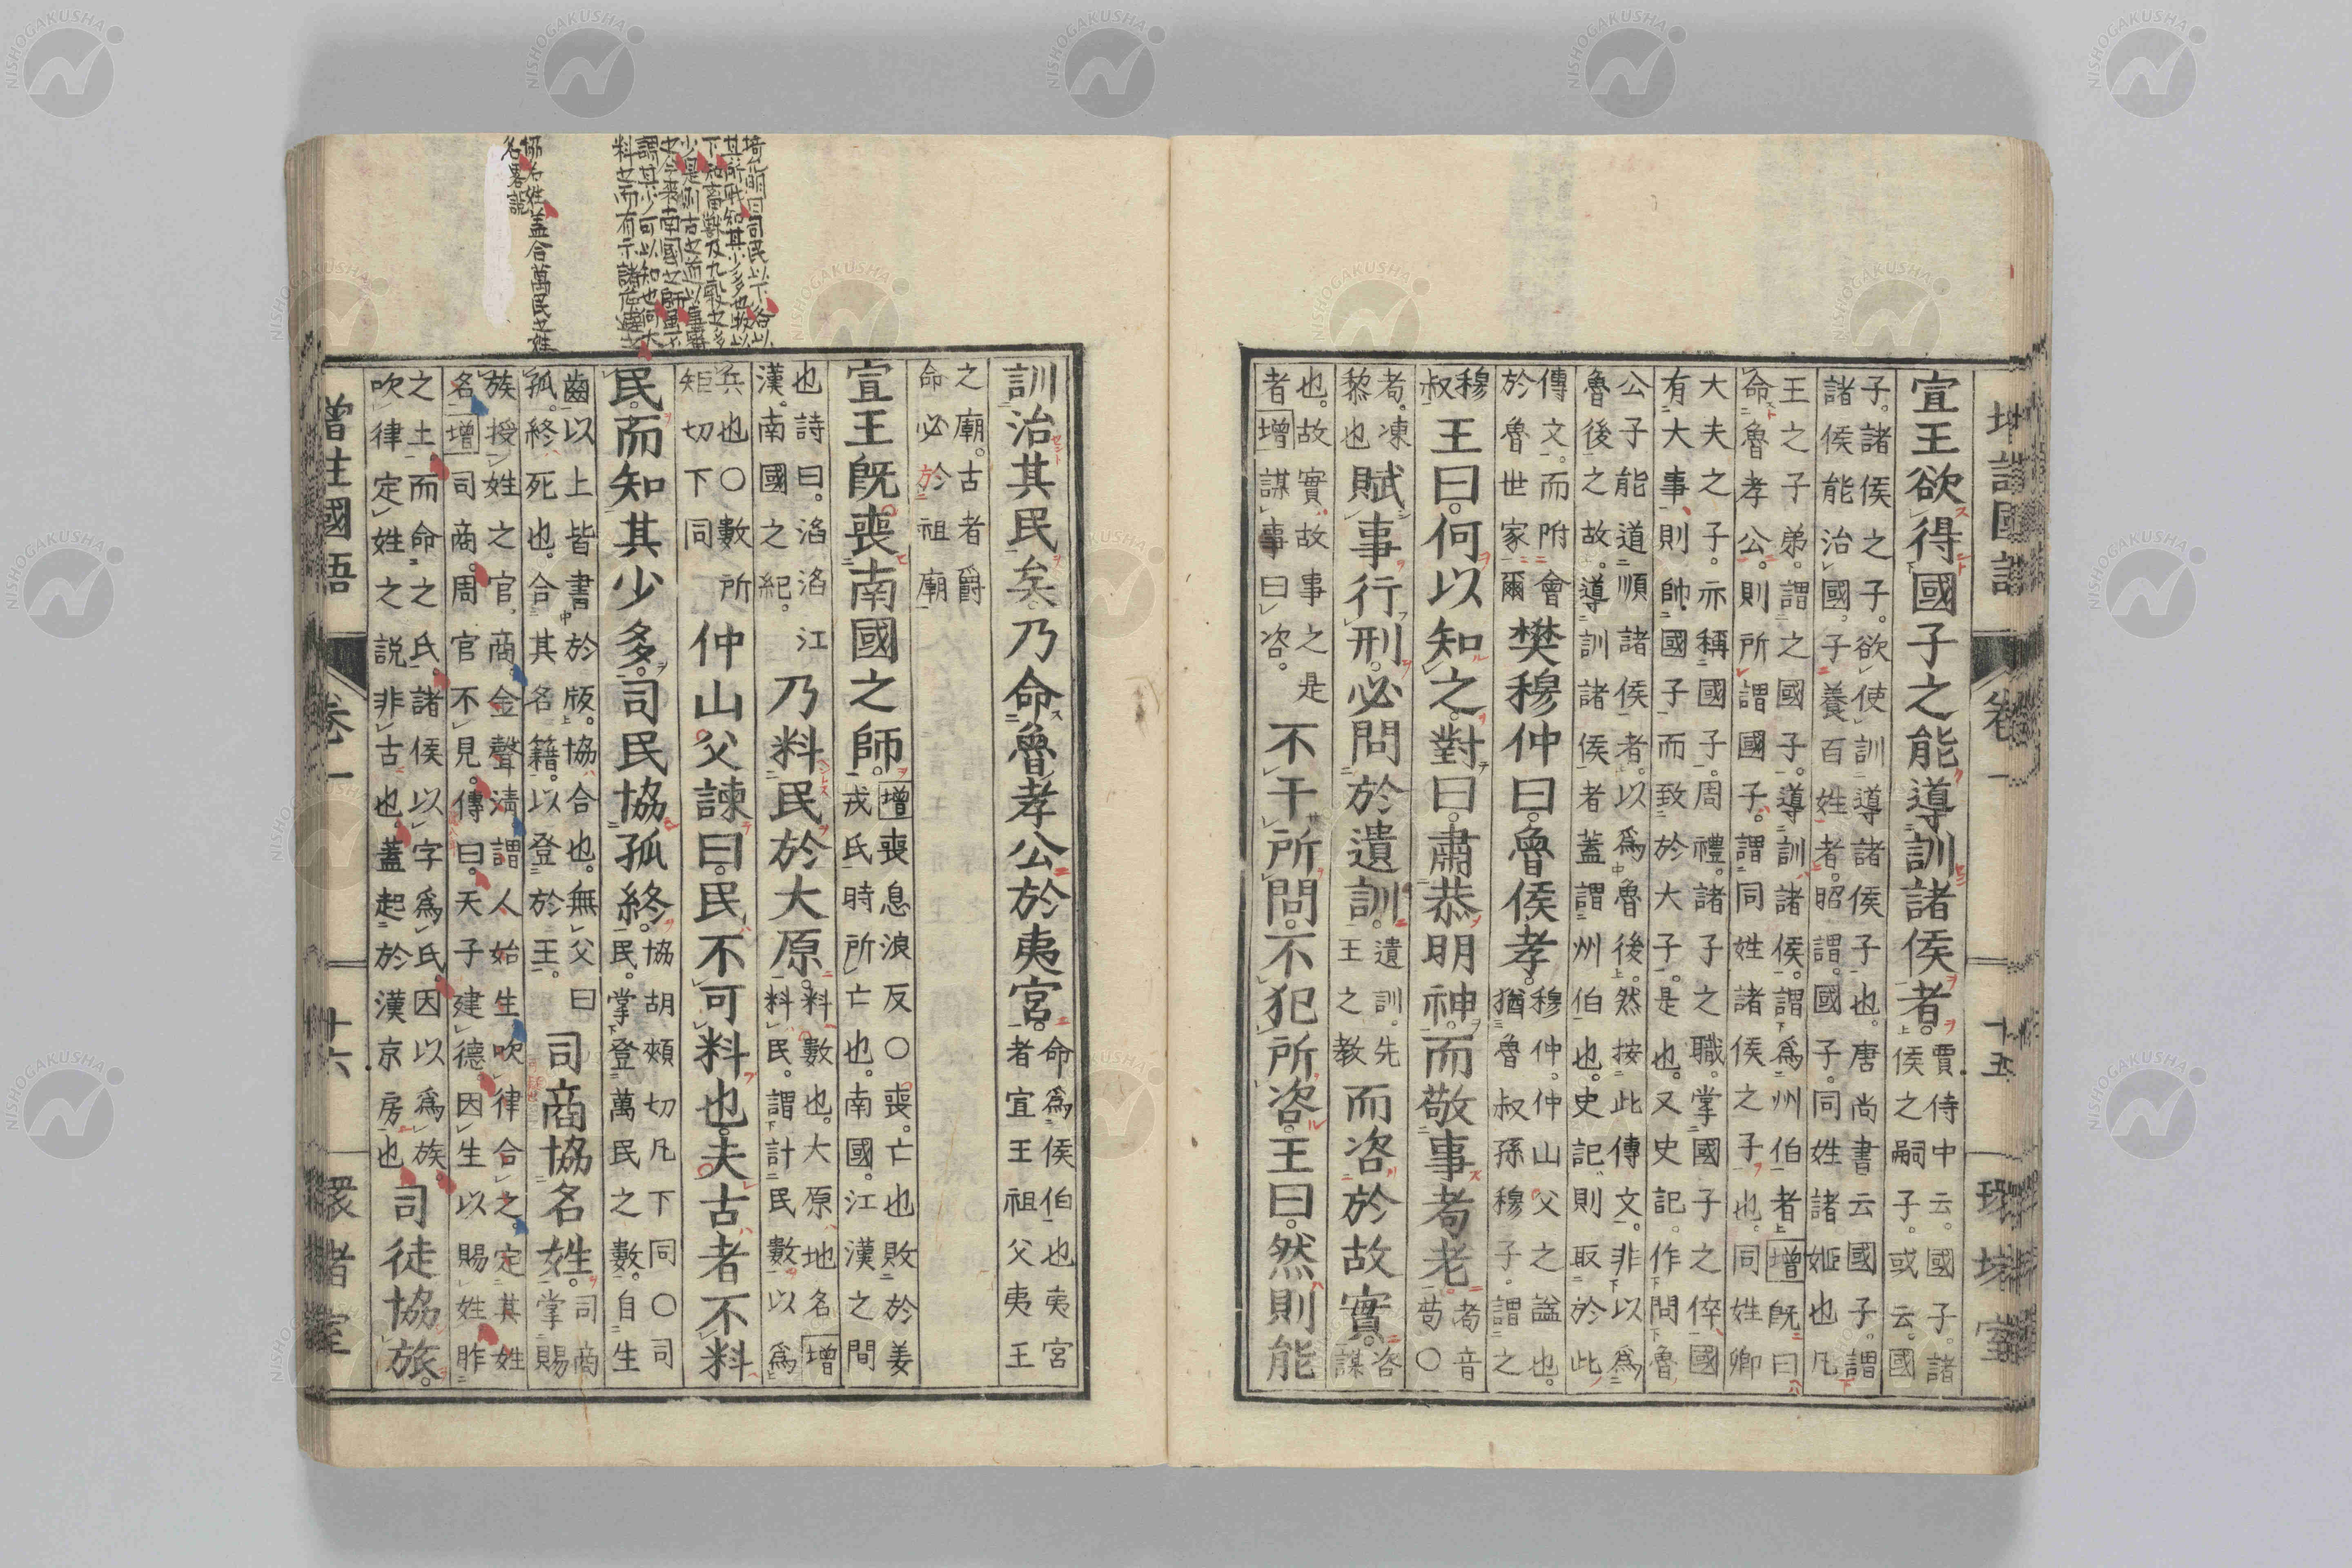 增註國語 卷一 十五 環堵室
宣王欲得國子之能導訓諸侯者。賈侍中云。國子。諸侯之嗣子。或云。國
子。諸侯之子。欲使訓導諸侯子也。唐尚書云國子。謂
諸侯能治國、子養百姓者。昭謂。國子。同姓諸姬也凡
王之子弟。謂之國子。導訓諸侯。謂爲州伯者增既曰
命魯孝公。則所謂國子。謂同姓諸侯之子也。同姓卿
大夫之子。亦稱國子。周禮。諸子之職。掌國子之倅國
有大事則帥國子而致於大子。是也。又史記。作問魯
公子能道順諸侯者。以爲魯後。然按此傳文。非以爲
魯後之故。導訓諸侯者蓋謂州伯也。史記。則取於此
傳文。而附會於魯世家爾樊穆仲曰。魯侯孝。穆仲。仲山父之諡也。猶魯叔孫穆子。謂之
穆叔王曰。何以知之。對曰。肅恭明神。而敬事耉老。耉音苟〇
耉。凍黎也賦事行刑。必問於遺訓。遺訓。先王之教而咨於故實。咨謀
也。故實故事之是者增謀事曰咨。不干所問。不犯所咨。王曰。然則能
訓治其民矣。乃命魯孝公於夷宮。命爲侯伯也夷宮者宣王祖父夷王
之廟。古者爵命必於祖廟
宣王既喪南國之師。增喪息浪反〇喪。亡也敗於姜戎氏時所亡也。南國。江漢之間
也詩曰。滔滔江漢。南國之紀。乃料民於大原。料數也。大原地名增料民。謂計民數以爲
兵也〇數所矩切下同仲山父諫曰。民不可料也。夫古者不料
民。而知其少多。司民協孤終。協胡頰切凡下同〇司民。掌登萬民之數。自生
齒以上皆書於版。協合也。無父曰孤。終死也。合其名籍。以登於王。司商協名姓。司商掌賜
族授姓之官、商金聲淸謂人始生吹律合之。定其姓
名增司商。周官不見。傳曰。天子建德。因生以賜姓胙
之土。而命之氏。諸侯以字爲氏。因以爲族。
吹律定姓之說非古也。蓋起於漢京房也司徒協旅。
增註國語 卷一 十六 環堵室
協名姓蓋合萬民之姓